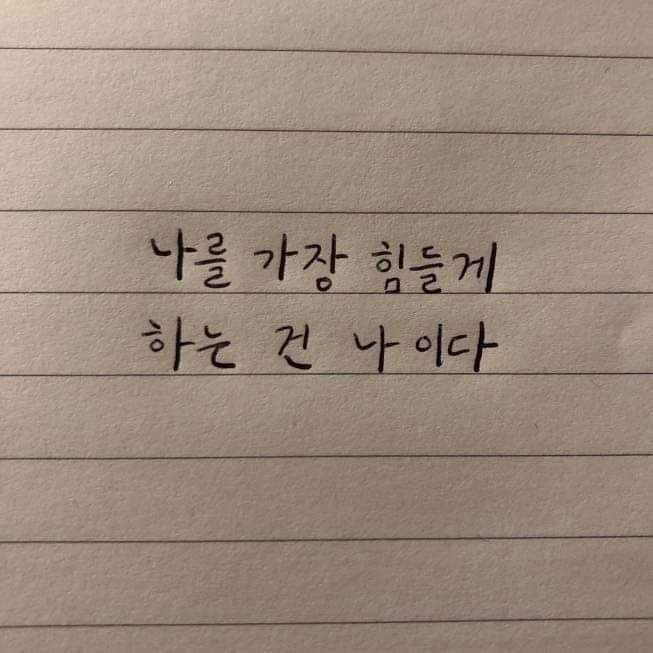 나를 가장 힘들게
하는 건 나이다